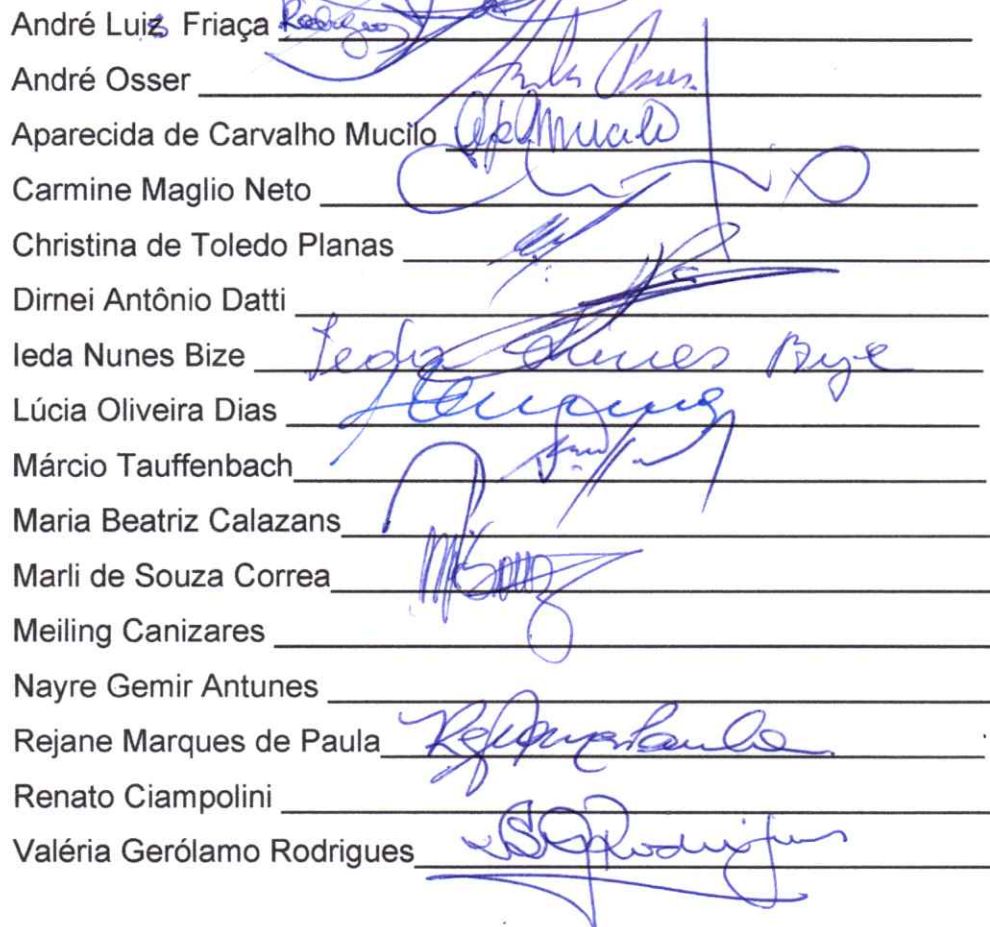 André Luiz Friaça Rodrigues
André Osser
Aparecida de Carvalho Mucilo ApCMucilo
Carmine Maglio Neto
Christina de Toledo Planas
Dirnei Antônio Datti
Ieda Nunes Bize Ieda Nunes Bize
Lúcia Oliveira Dias
Márcio Tauffenbach
Maria Beatriz Calazans
Marli de Souza Correa
Meiling Canizares
Nayre Gemir Antunes
Rejane Marques de Paula
Renato Ciampolini
Valéria Gerólamo Rodrigues VSGRodrigues